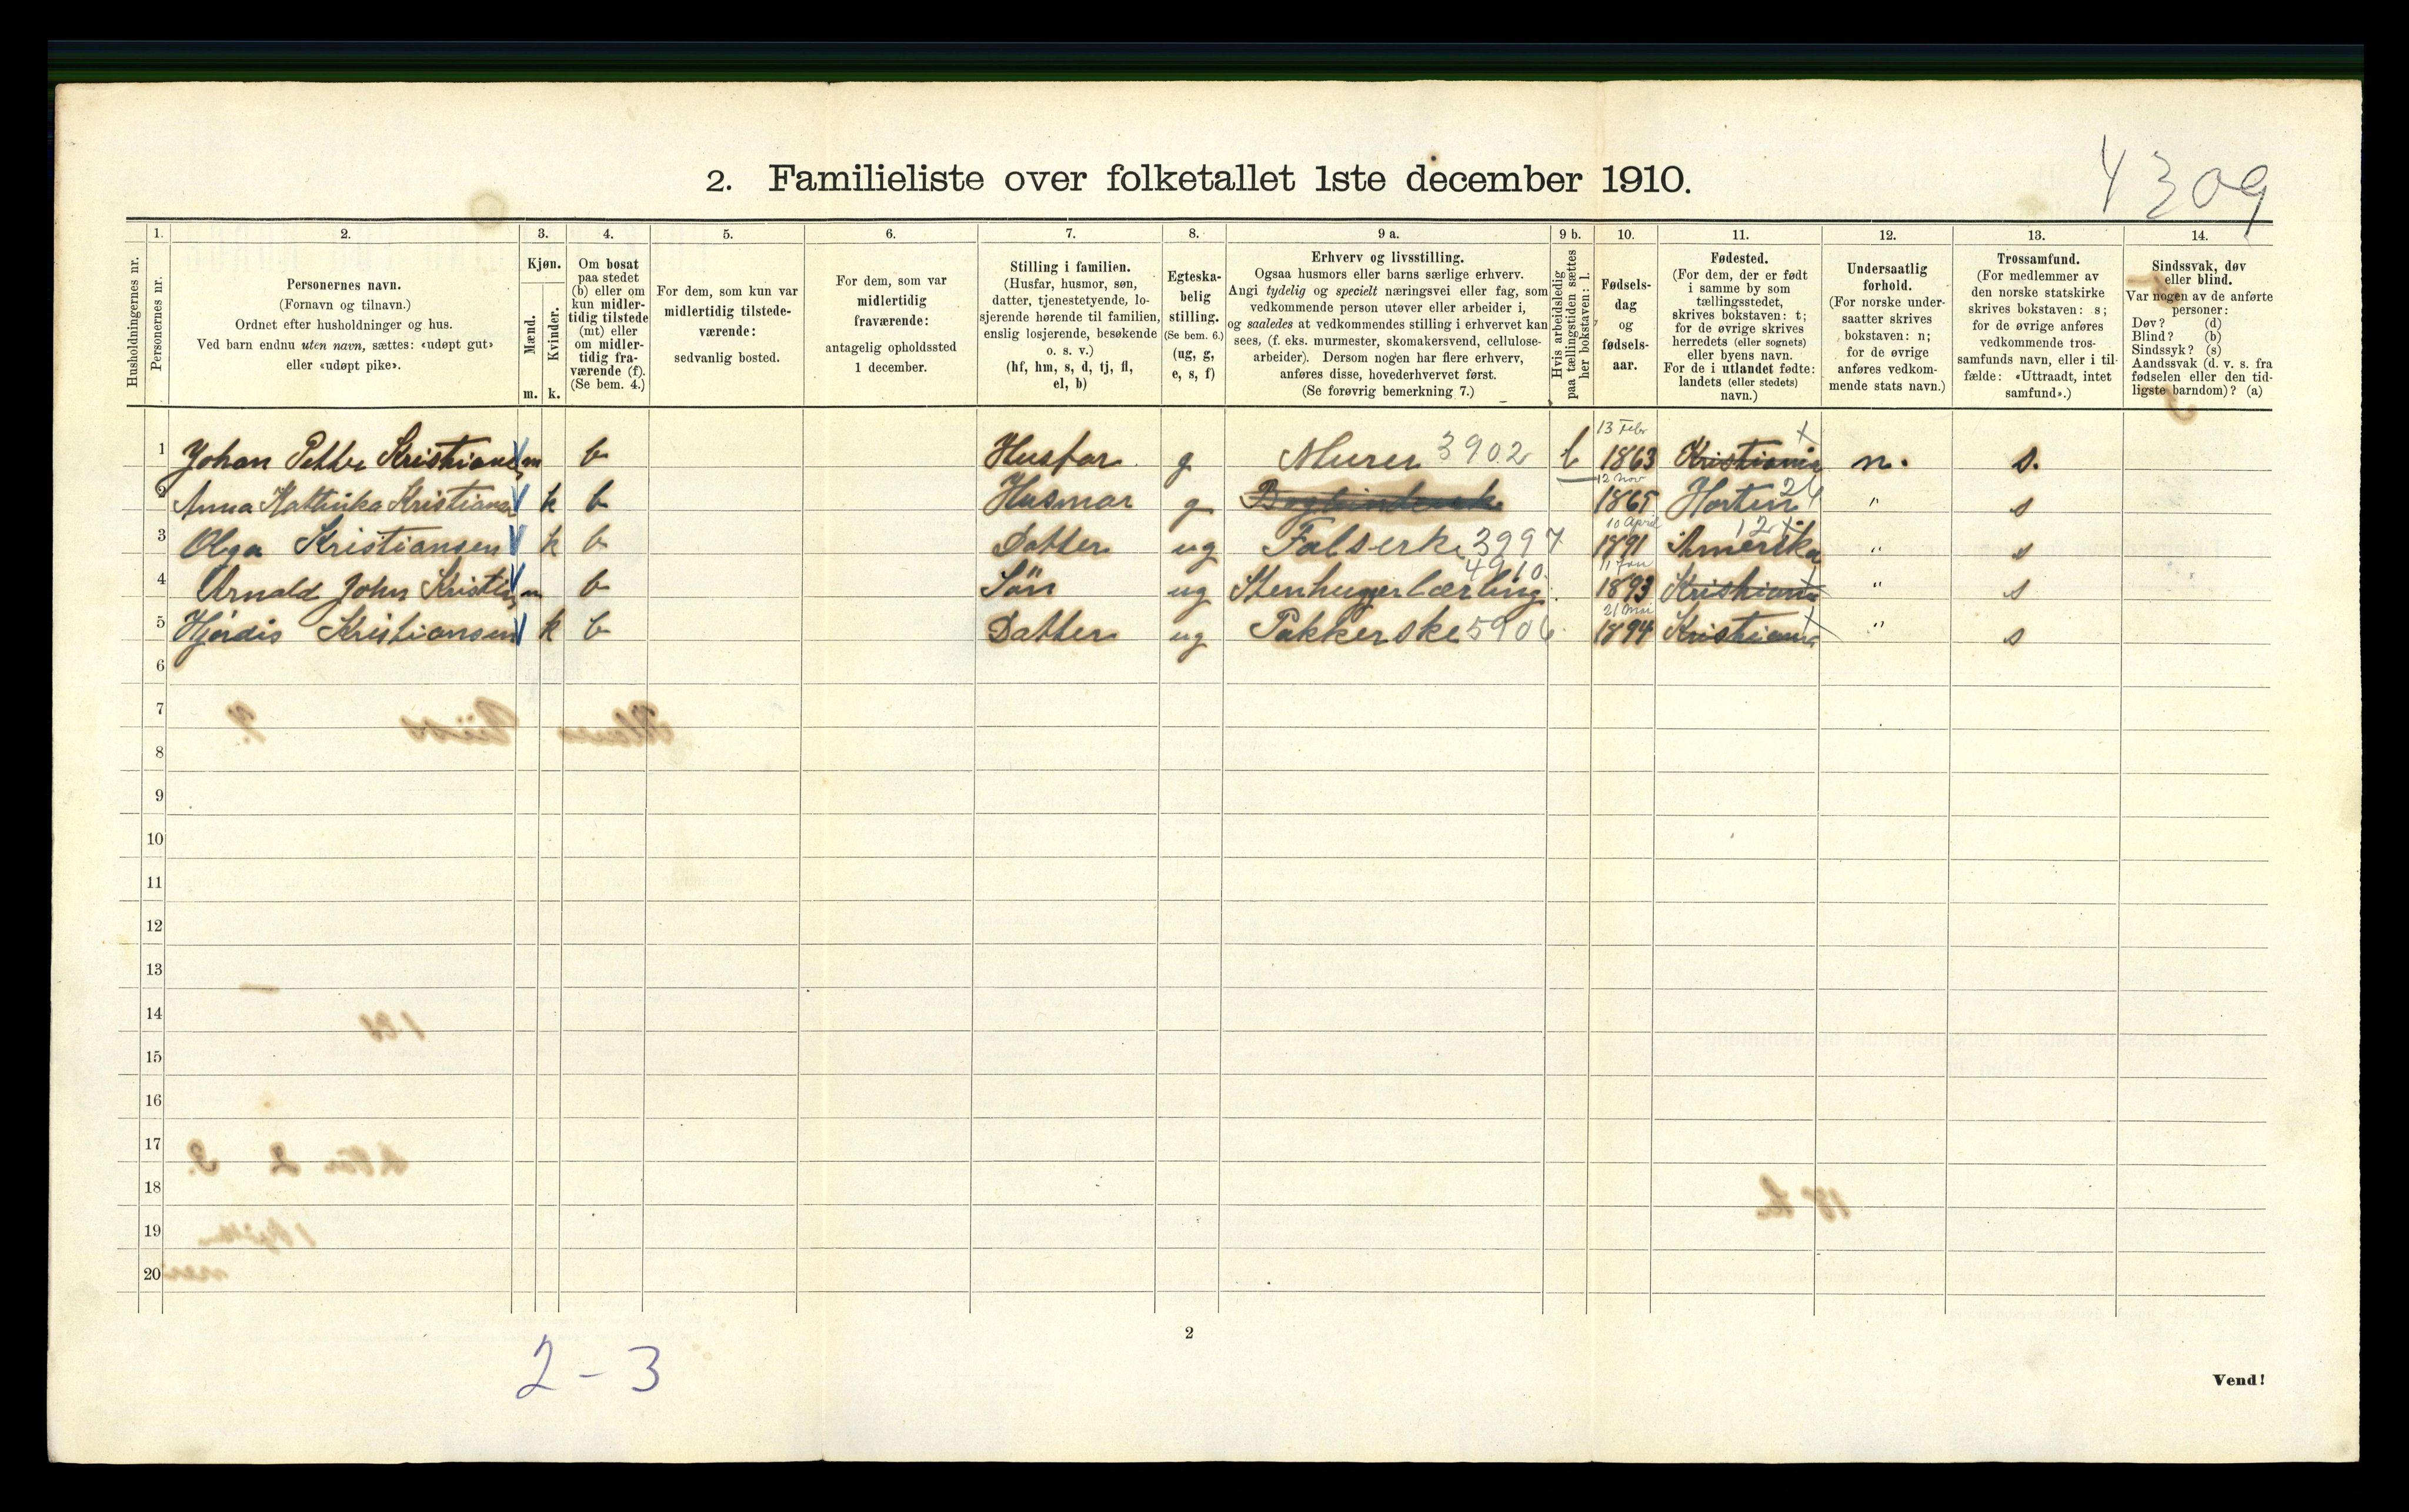 4309
2. Familieliste over folketallet 1ste december 1910.
Husholdningernes nr.
1. Personernes nr.
2. Personernes navn.
(Fornavn og tilnavn.)
Ordnet efter husholdninger og hus.
Ved barn endnu uten navn, sættes: «udøpt gut»
eller «udøpt pike».
3. Kjøn.
Mænd. Kvinder.
m. k.
4. Om bosat
paa stedet
(b) eller om
kun midler-
tidig tilstede
(mt) eller
om midler-
tidig fra-
værende (f).
(Se bem. 4.)
5. For dem, som kun var
midlertidig tilstede-
værende:
sedvanlig bosted.
6. For dem, som var
midlertidig
fraværende:
antagelig opholdssted
1 december.
7. Stilling i familien.
(Husfar, husmor, søn,
datter, tjenestetyende, lo-
sjerende hørende til familien,
enslig losjerende, besøkende
o. s. v.)
(hf, hm, s, d, tj, fl,
el, b)
8. Egteska-
belig
stilling.
(Se bem. 6.)
(ug, g,
e, s, f)
9 a. Erhverv og livsstilling.
Ogsaa husmors eller barns særlige erhverv.
Angi tydelig og specielt næringsvei eller fag, som
vedkommende person utøver eller arbeider i,
og saaledes at vedkommendes stilling i erhvervet kan
sees, (f. eks. murmester, skomakersvend, cellulose-
arbeider). Dersom nogen har flere erhverv,
anføres disse, hovederhvervet først.
(Se forøvrig bemerkning 7.)
9 b. Hvis arbeidsledig
paa tællingstiden sættes
her bokstaven: l.
10. Fødsels-
dag
og
fødsels-
aar.
11. Fødested.
(For dem, der er født
i samme by som
tællingsstedet,
skrives bokstaven: t;
for de øvrige skrives
herredets (eller sognets)
eller byens navn.
For de i utlandet fødte:
landets (eller stedets)
navn.)
12. Undersaatlig
forhold.
(For norske under-
saatter skrives
bokstaven: n;
for de øvrige
anføres vedkom-
mende stats navn.)
13. Trossamfund.
(For medlemmer av
den norske statskirke
skrives bokstaven: s;
for de øvrige anføres
vedkommende tros-
samfunds navn, eller i til-
fælde: «Uttraadt, intet
samfund».)
14. Sindssvak, døv
eller blind.
Var nogen av de anførte
personer:
Døv? (d)
Blind? (b)
Sindssyk? (s)
Aandssvak (d. v. s. fra
fødselen eller den tid-
ligste barndom)? (a)
1 Johan Petter Kristiansen m b Husfar g Murer 3902 l 13 Febr 1863 Kristiania n. s.
2 Anna Kathinka Kristiansen k b Husmor g 12 Nov 1865 Horten 24 " s
3 Olga Kristiansen k b Datter ug Falserke 3997 10 April 1891 Amerika 12 " s
4 Arnold John Kristia m b Sön ug Stenhuggerlærling 4910 11 Jan 1893 Kristiania " s
5 Hjördis Kristiansen k b Datter ug Pakkerske 5906 21 Mai 1894 Kristiania " s
6
7
8
9
10
11
12
13
14
15
16
17
18
19
20
2
2-3
Vend!